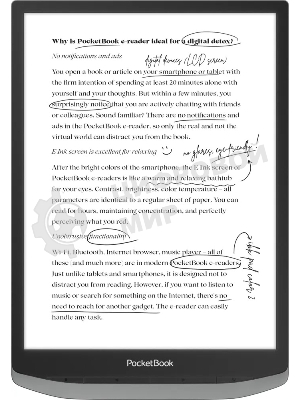 Why is PocketBook e-reader ideal for a digital detox?
No notifications and ads
digital devices (LCD screen)
You open a book or article on your smartphone or tablet with
the firm intention of spending at least 20 minutes alone with
yourself and your thoughts. But within a few minutes, you
surprisingly notice that you are actively chatting with friends
or colleagues. Sound familiar? There are no notifications and
ads in the PocketBook e-reader, so only the real and not the
virtual world can distract you from the book.
E Ink screen is excellent for relaxing
no glares, eye-friendly!
After the bright colors of the smartphone, the E Ink screen of
PocketBook e-readers is like a warm and relaxing bath tub
for your eyes. Contrast, brightness, color temperature - all
parameters are identical to a regular sheet of paper. You can
read for hours, maintaining concentration, and perfectly
perceiving what you read.
functionality
Wi-Fi, Bluetooth, Internet browser, music player - all of
these (and much more) are in modern PocketBook e-readers.
Just unlike tablets and smartphones, it is designed not to
distract you from reading. However, if you want to listen to
music or search for something on the Internet, there's no
need to reach for another gadget. The e-reader can easily
handle any task.
PocketBook